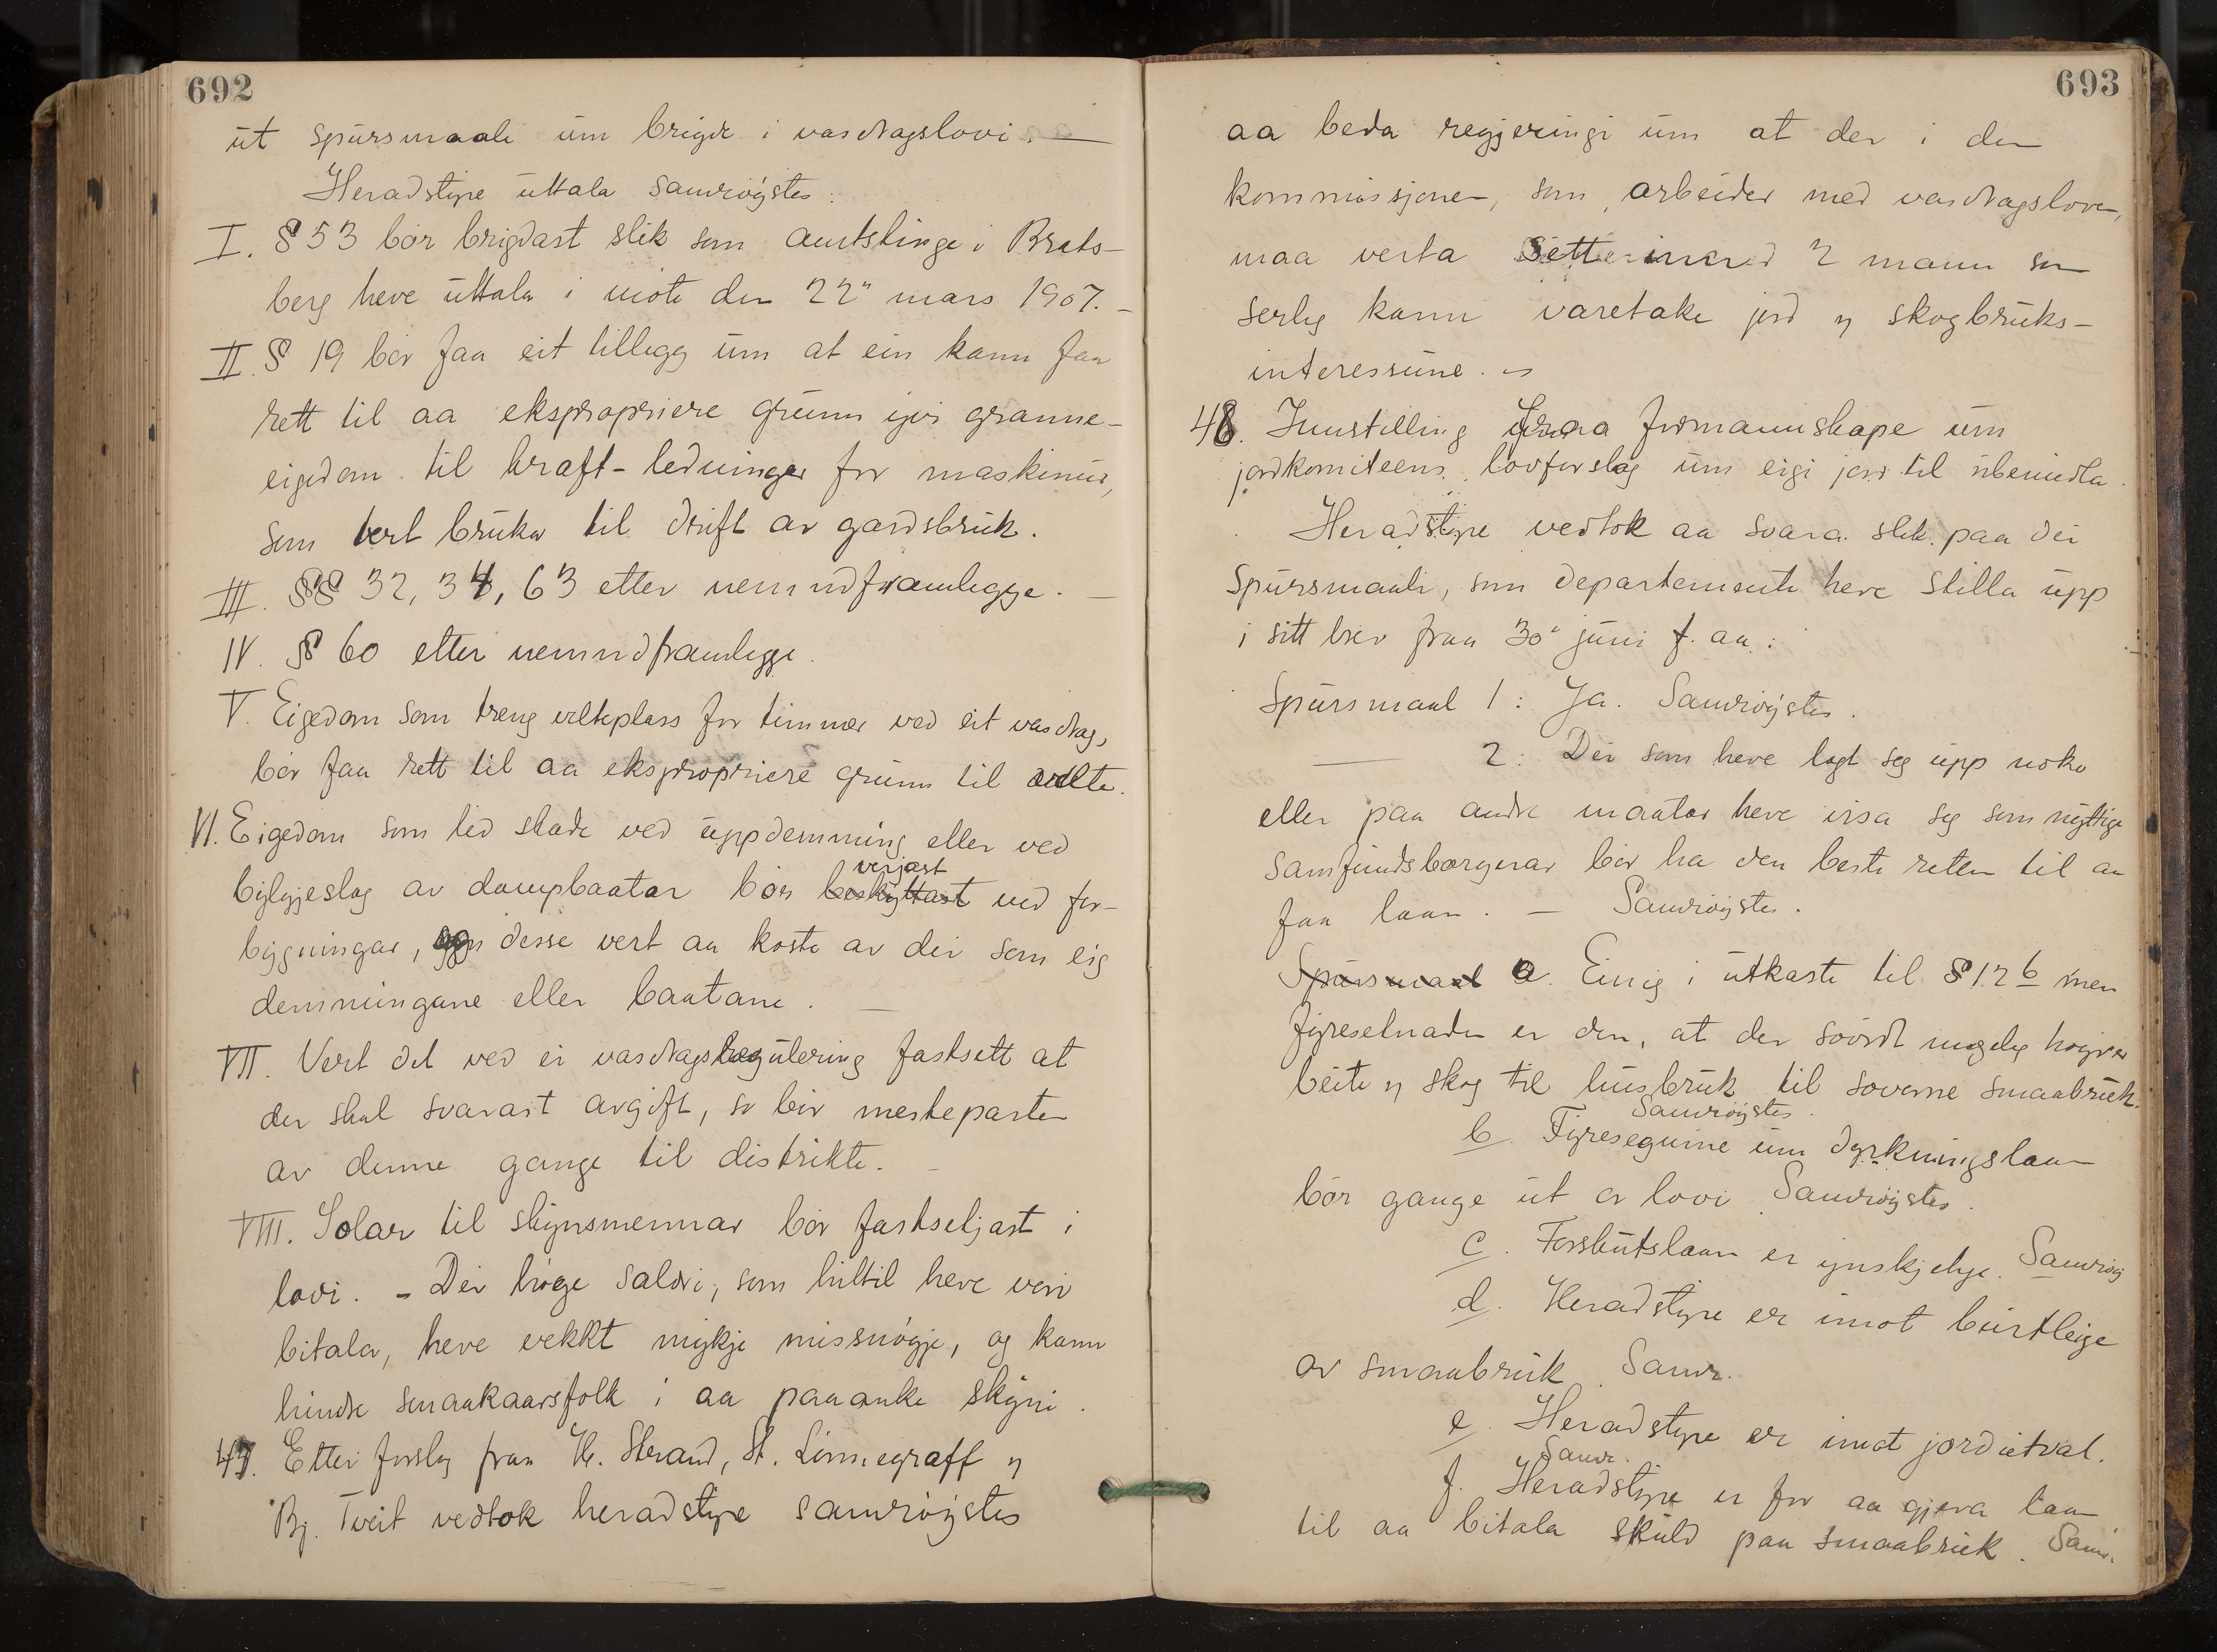 692
ut spursmaale um brigde i vasdragslovi. —
Heradstyre uttala samrøystes:
I. § 53 bør brigdast slik som amtstinge i Brats-
berg heve uttala i møte den 22" mars 1907. –
II. § 19 bør faa eit tillegg um at ein kann faa
rett til aa ekspropriere grunn yvi granne-
eigedom til kraft-ledninger for maskinur,
som vert bruka til drift av gardsbruk.
III. §§ 32, 34, 63 etter nemndframlegge. —
IV. § 60 etter nemndframlegge.
V. Eigedom som treng velteplass for timmer ved eit vasdrag,
bør faa rett til aa ekspropriere grunn til velte.
VI. Eigedom som lid skade ved uppdemming eller ved
bylgjeslag av dampbaatar bør beskyttast verjast ved for-
bygningar, og desse vert aa koste av dei som eig
demningane eller baatane. —
VII. Vert det ved ei vasdragsregulering fastsett at
der skal svarast avgift, so bør mesteparten
av denne gange til distrikte. –
VIII. Solar til skynsmennar bør fastseljast i
lovi. – Dei høge salæri, som hiltil heve vori
bitala, heve vekkt mykje missnøgje, og kann
hindre smaakaarsfolk i aa paaanke skyni.
47. Etter forslag fraa H. Strand, St. Linnegraff og
Bj. Tveit vedtok heradstyre samrøystes
693
aa beda regjeringi um at der i den
kommissjonen, som arbeider med vasdragsloven,
maa verta sette inn 2 mann som
serleg kann varetake jord og skogbruks-
interessune. –
48. Innstilling fraa formannskape um
jordkomiteens lovforslag um eigi jord til ubemidla.
Heradstyre vedtok aa svara slik paa dei
spursmaali, som departemente heve stilla upp
i sitt brev fraa 30" juni f. aa:
Spursmaal 1: Ja. Samrøystes.
— 2: Dei som heve lagt seg upp noko
eller paa andre maatar heve visa seg som nyttige
samfundsborgerar bør ha den beste retten til aa
faa laan. — Samrøystes.
Spursmaal a. Einig i utkaste til § 12 b men
fyresetnaden er den, at der søvrdt mogeleg høyrer
beite og skog til husbruk til sovorne smaabruk.
Samrøystes.
b. Fyresegnine um dyrkningslaan
bør gange ut av lovi. Samrøystes.
c. Forskutslaan er ynskjelege. Samrøy
d. Heradstyre er imot burtleige
av smaabruk. Samr.
e. Heradstyre er imot jordutval.
Samr.
f. Heradstyre er for aa gjeva laan
til aa bitala skuld paa smaabruk. Samr.